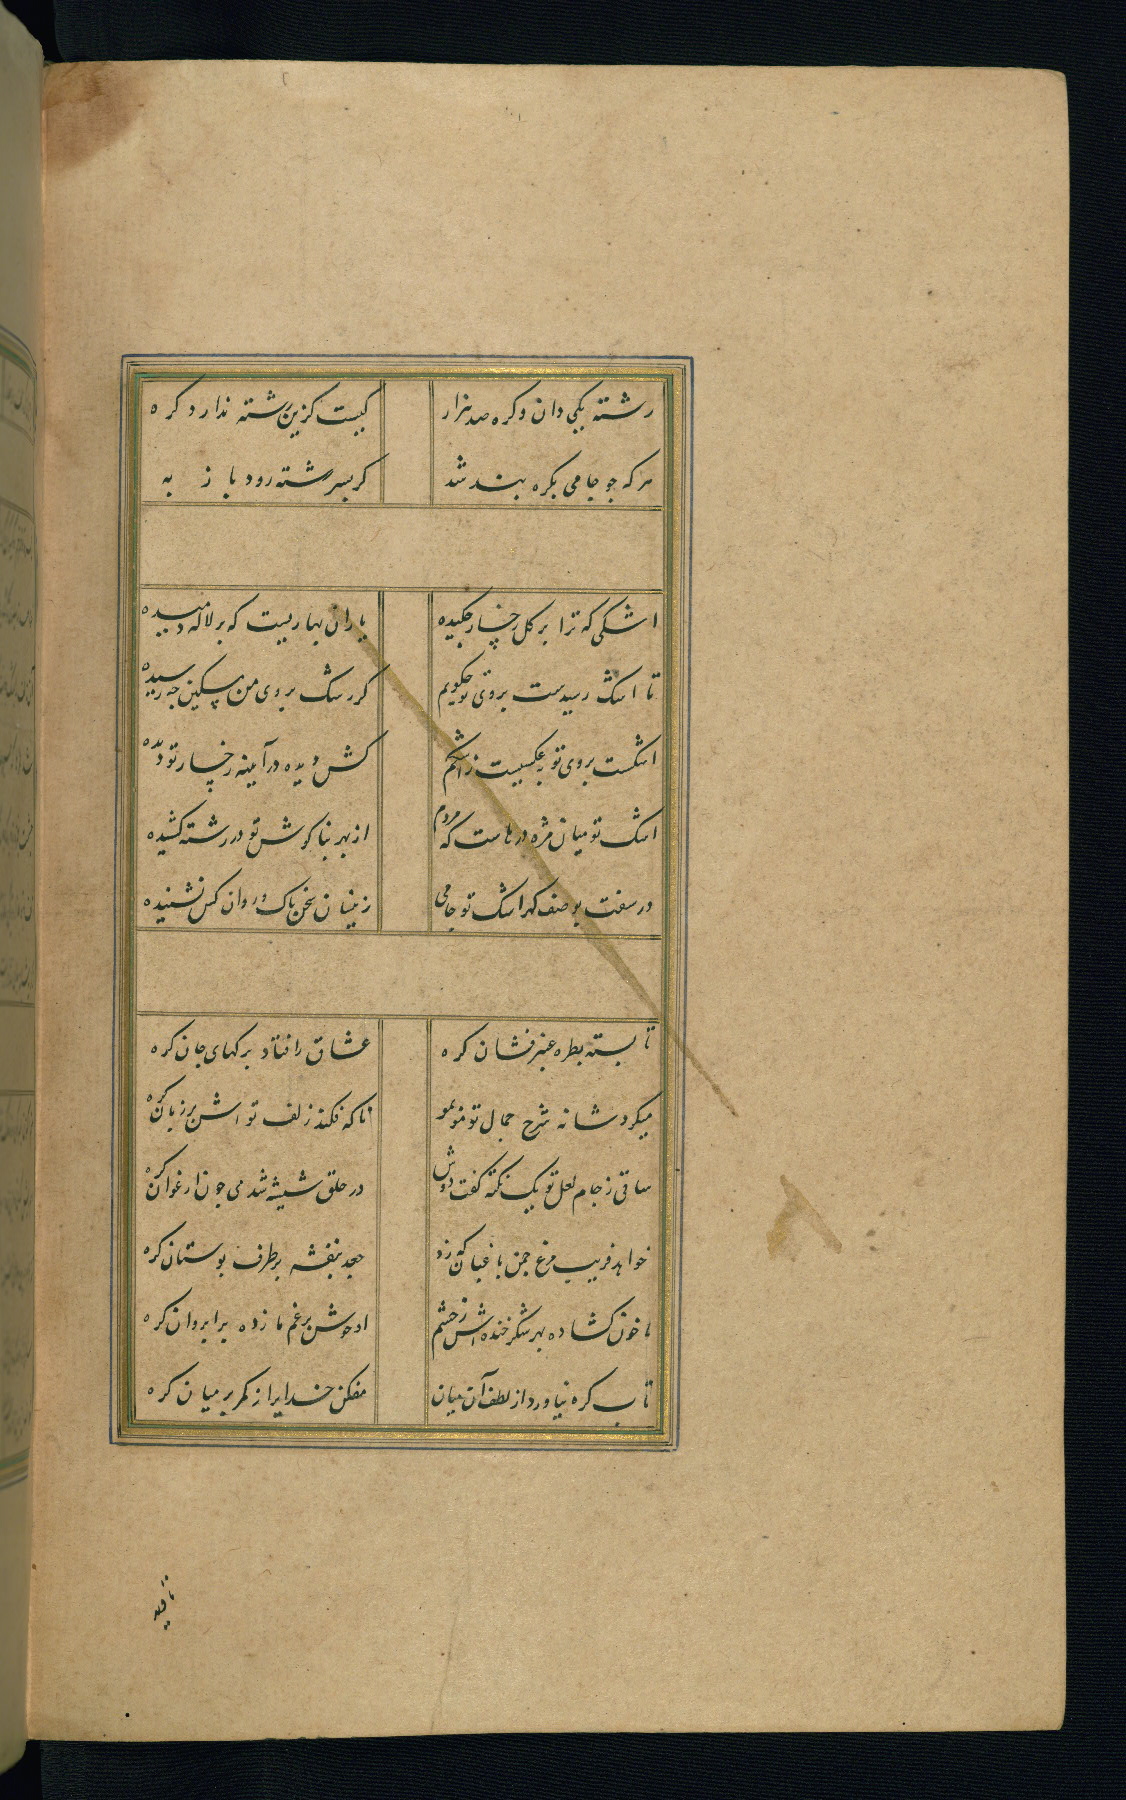 رشته یکی دان و کره صد هزار کیست کزین رشته ندارد کره
هر که جو جامی بکره بند شد کر بسر رشته رود باز به
اشکی که ترا بر کل رخسار جکیده باران بهاریست که بر لاله دمیده
تا اشک رسیدست بروی تو جکویم کز رشک بروی من مسکین جه رسیده
اشکست بروی تو نه عکسیست ز اشکم کش دیده در آیینه رخسار تو دیده
اشک تو میان مژه درهاست که مردم از بهر بناکوش تو در رشته کشیده
در سفت بوصف کهر اشک تو جامی زینسان سخن پاک و روان کس نشنیده
تا بسته بطره عنبرفشان کره عشاق را فتاد برکهای جان کره
میکرد شانه شرح جمال تو مو بمو ناکه فکند زلف تو اش بر زبان کره
ساقی ز جام لعل تو یک نکته کفت دوش در حلق شیشه شد می جون ارغوان کره
خواهد فریب مرغ جمن باغبان که زد جعد بنفشه بر طرف بوستان کره
ما خون کشاده بهر شکر خنده اش ز چشم او خوش برغم ما زده بر ابروان کره
تاب کره نیاورد از لطف آن میان مفکن خدایرا ز کمر بر میان کره